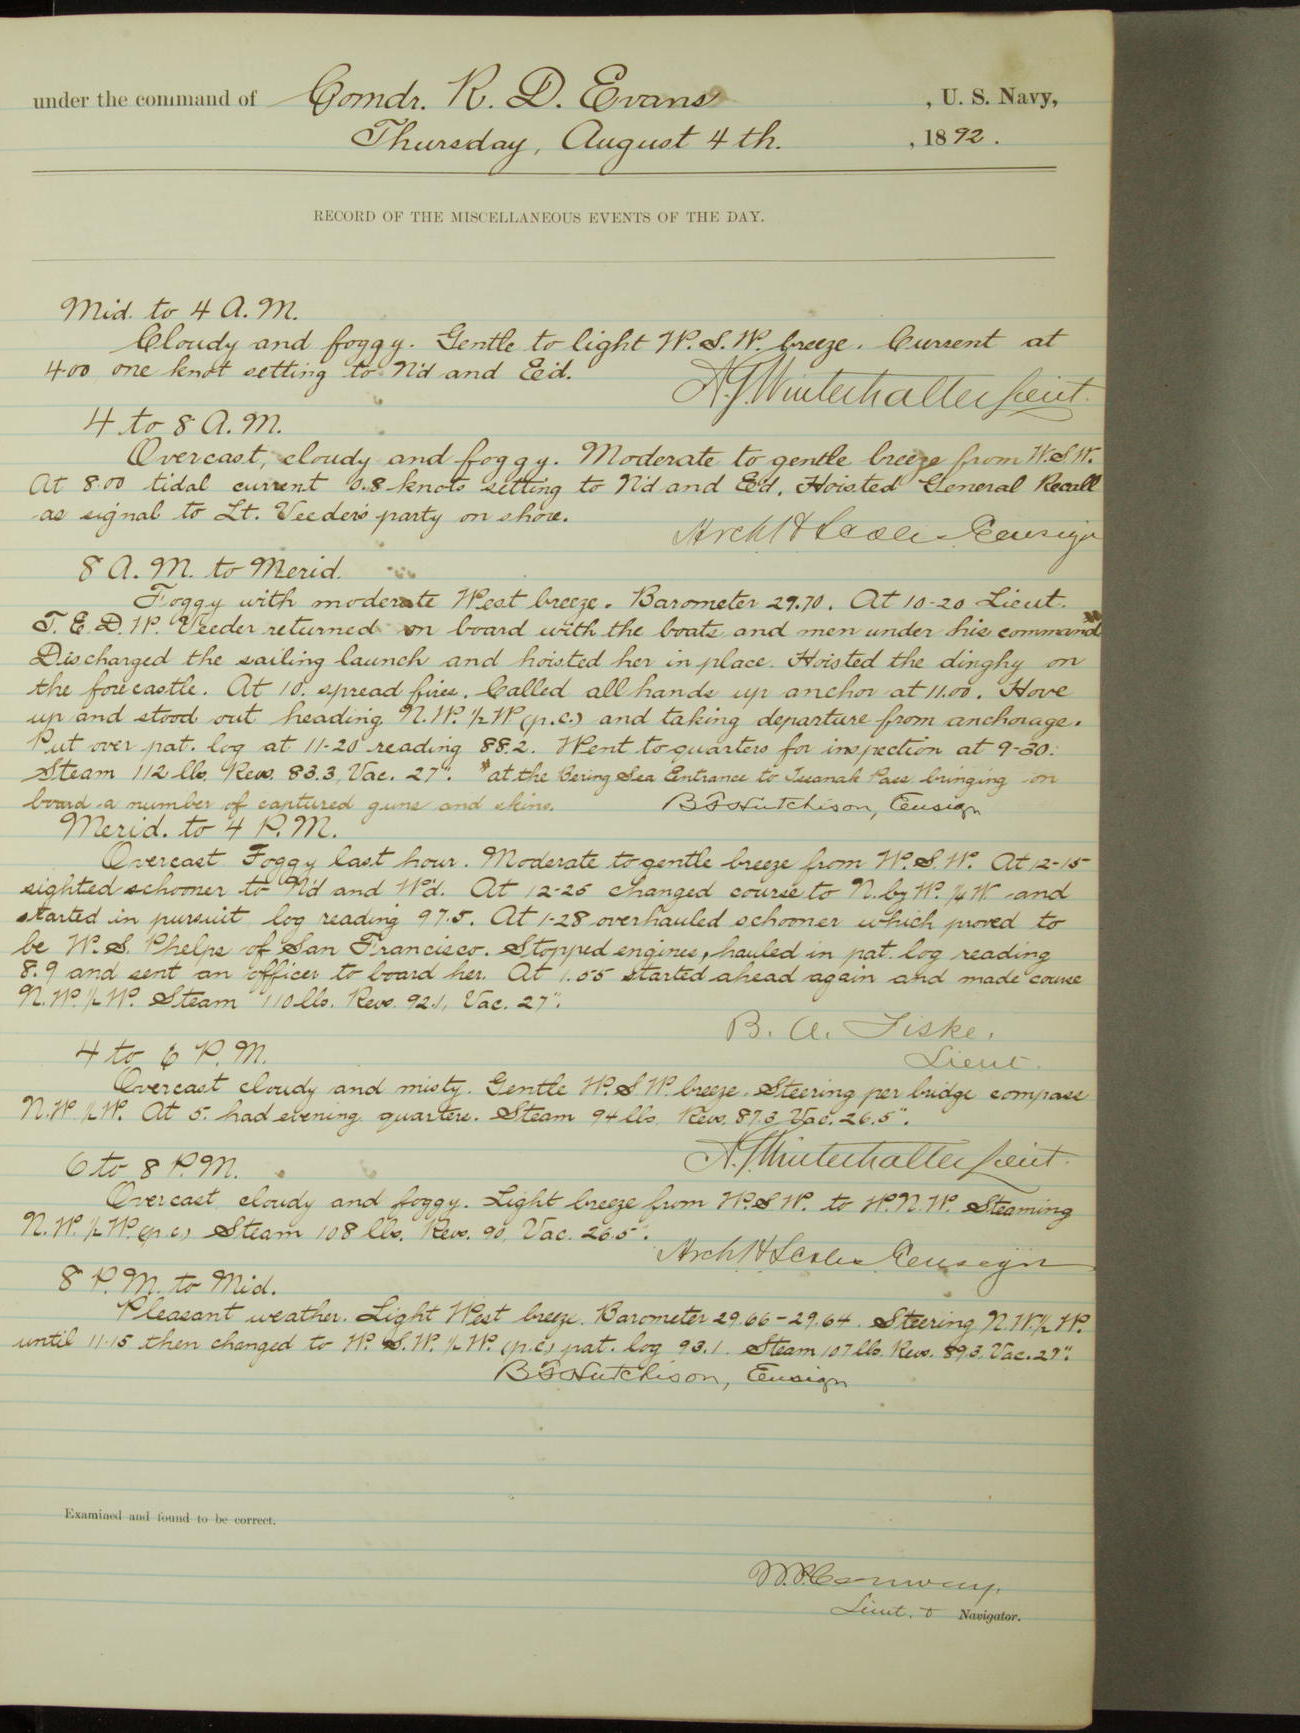 under the command of Comdr. R. D. Evans, U. S. Navy,
Thursday, August 4th., 1892.
RECORD OF THE MISCELLANEOUS EVENTS OF THE DAY.
Mid. to 4 A.M.
Cloudy and foggy. Gentle to light W.S.W. breeze. Current at
4.00 one knot setting to N'd and E'd.
A.G. Winterhalter Lieut.
4 to 8 A.M.
Overcast, cloudy and foggy. Moderate to gentle breeze from W.S.W.
At 8.00 tidal current 0.8 knots setting to N'd and E'd. Hoisted General Recall
as signal to Lt. Veeder's party on shore.
Arch H Scales Ensign
8 A.M. to Merid.
Foggy with moderate West breeze. Barometer 29.70. At 10-20 Lieut.
T.E.D.W. Veeder returned on board with the boats and men under his command*
Discharged the sailing launch and hoisted her in place. Hoisted the dinghy on
the forecastle. At 10. spread fires. Called all hands up anchor at 11.00. Hove
up and stood out heading N.W. 1/2 W (p.c.) and taking departure from anchorage.
Put over pat. log at 11-20 reading 88.2. Went to quarters for inspection at 9-30.
Steam 112 lbs, Revs. 83.3, Vac. 27". *at the Bering Sea Entrance to Isanak Pass bringing on
board a number of captured guns and skins. B F Hutchison, Ensign
Merid. to 4 P.M.
Overcast Foggy last hour. Moderate to gentle breeze from W.S.W. At 12-15
sighted schooner to N'd and W'd. At 12-25 changed course to N. by W. 1/4 W. and
started in pursuit log reading 97.5. At 1-28 overhauled schooner which proved to
be W.S. Phelps of San Francisco. Stopped engines, hauled in pat. log reading
8.9 and sent an officer to board her. At 1.55 started ahead again and made course
N.W. 1/2 W. Steam 110 lbs. Revs. 92.1, Vac. 27".
B. A. Fiske.
Lieut.
4 to 6 P.M.
Overcast cloudy and misty. Gentle W.S.W. breeze. Steering per bridge compass
N.W. 1/2 W. At 5. had evening quarters. Steam 94 lbs, Revs. 87.3 Vac. 26.5".
A.G. Winterhalter Lieut.
6 to 8 P.M.
Overcast, cloudy and foggy. Light breeze from W.S.W. to W.N.W. Steaming
N.W. 1/2 W. (p.c.) Steam 108 lbs. Revs. 90, Vac. 26.5".
Arch H Scales Ensign
8 P.M. to Mid.
Pleasant weather. Light West breeze. Barometer 29.66-29.64. Steering N.W. 1/2 W.
until 11-15 then changed to W.S.W. 1/2 W. (p.c.) pat. log 93.1. Steam 107 lbs. Revs. 89.3, Vac. 27".
B F Hutchison, Ensign
Examined and found to be correct.
W.P. Conway,
Lieut. & Navigator.